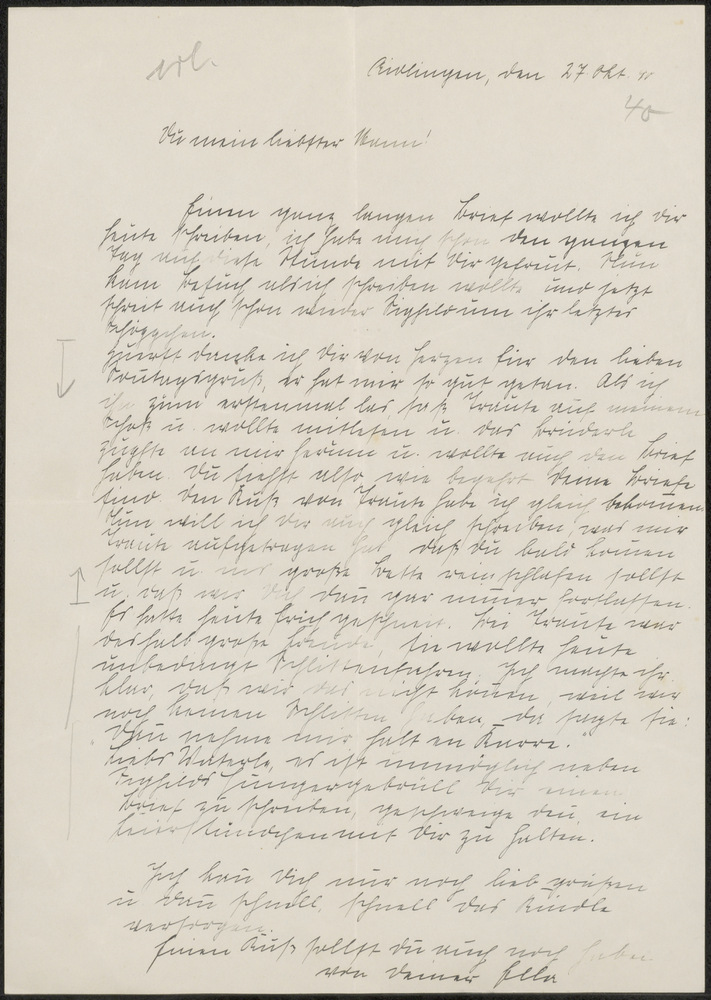 erl.
Aidlingen, den 27 Okt. 40
40
Du mein liebster Mann!
Einen ganz langen Brief wollte ich dir
heute schreiben, ich habe mich schon den ganzen
Tag auf diese Stunde mit Dir gefreut. Nun
kam Besuch als ich schreiben wollte und jetzt
schreit auch schon wieder Sighild um ihr letztes
Schöppchen.
Zuerst danke ich Dir von Herzen für den lieben
Sonntagsgruß, er hat mir so gut getan. Als ich
ihn zum erstenmal las, saß Traute auf meinem
Schoß u. wollte mitlesen u. das Brüderle
an mir herum u. wollte auch den Brief
haben. Du siehst also wie begehrt Deine Briefe
sind. Den Kuß von Traute habe ich gleich bekommen.
Nun will ich Dir auch gleich schreiben, was mir
Traute aufgetragen hat, daß du bald kommen
sollst u. ins große Bette reinschlafen sollst
u. daß wir Dich dann gar nimmer fortlassen.
Es hatte heute frisch geschneit. Bei Traute war
deshalb große Freude, sie wollte heute
unbedingt Schlittenfahren. Ich machte ihr
klar, daß wir das nicht können, weil wir
noch keinen Schlitten haben, da sagte sie:
"Dann nehme mir halt en Karre."
Liebs Vaterle, es ist unmöglich neben
Sighilds Hungergebrüll Dir einen
Brief zu schreiben, geschweige denn ein
Feierstündchen mit Dir zu halten.
Ich kann Dich nur noch lieb grüßen
u. dann schnell, schnell das Kindle
versorgen.
Einen Kuß sollst du auch noch haben
von Deiner Ella